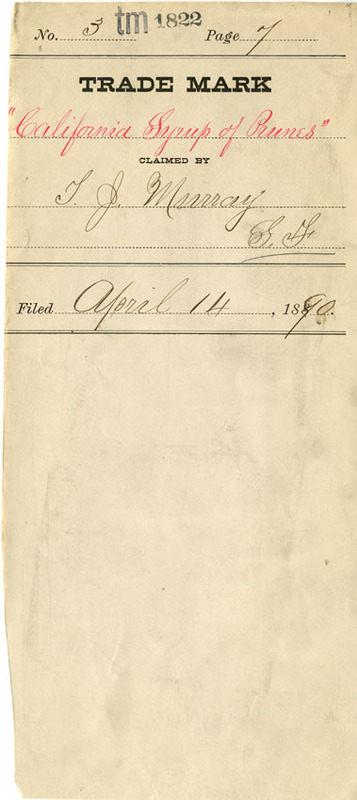 No. 3 tm 1822 Page 7
TRADE MARK
"California Syrup of Prunes"
CLAIMED BY
T. J. Murray
S. F.
Filed April 14, 1890.